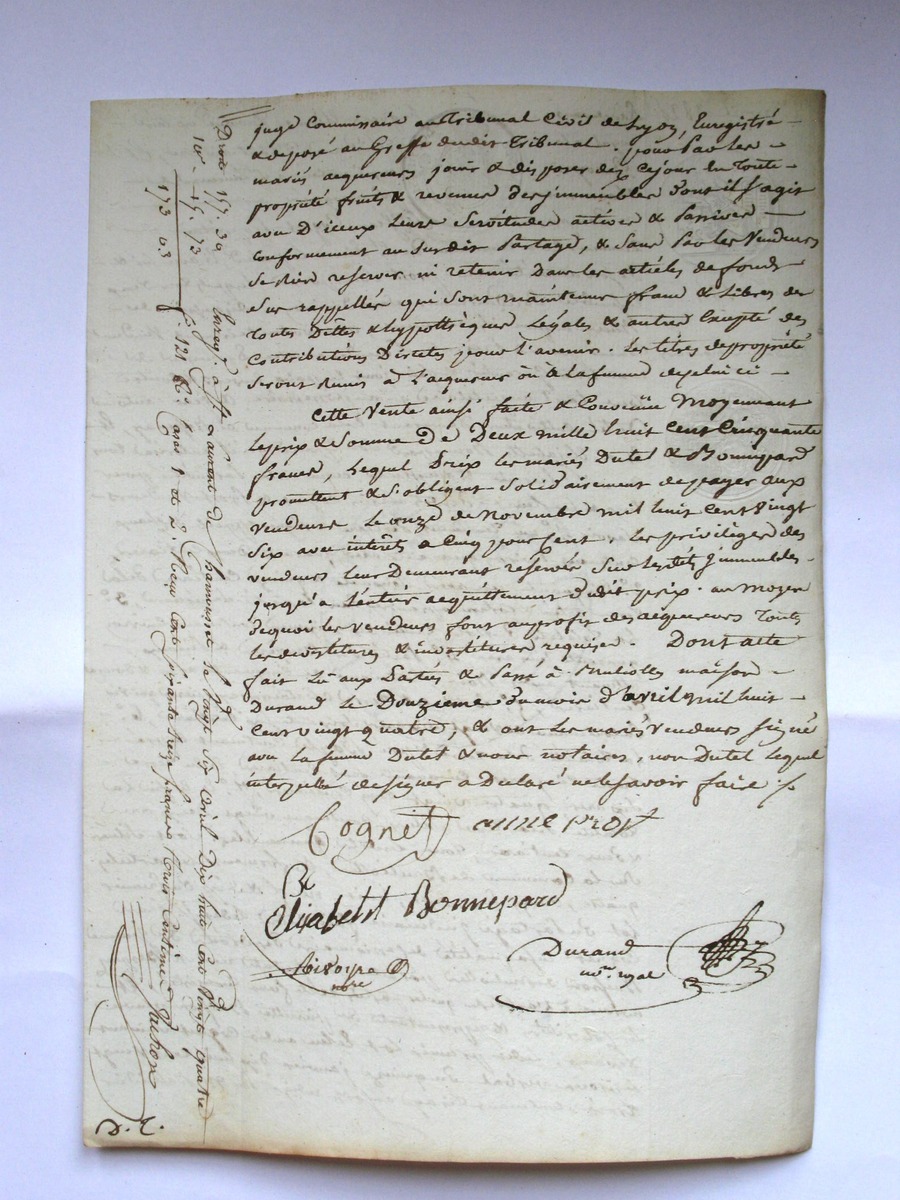 juge Commissaire au Tribunal Civil de Lyon, Enregistré
& deposé au Greffe dudit Tribunal. pour par les
mariés acquereurs jouir & disposer dez Cejour en toute
propriété fruits & revenus des immeubles dont il s'agit
avec D'iceux leurs Servitudes actives & Passives
conformement au susdit Partage, & sans par les Vendeurs
se Rien reserver ni retenir Dans les articles de fonds
sus rappellés qui sont maintenus francs & Libres de
toutes Dettes & hypothèques Légales & autres Excepté des
Contributions Directes pour l'avenir. Les titres de propriété
seront Remis à l'acquereur ou à la femme de celui ci
Cette Vente ainsi faite & Convenüe Moyennant
le prix & Somme de Deux mille huit Cent Cinquante
francs, Lequel Prix les mariés Dutel & Bonnepard
promettent & s'obligent Solidairement de payer aux
vendeurs Le onze de Novembre mil huit Cent Vingt
Six avec intérêts a Cinq pour Cent. les privilèges des
vendeurs leur Demeurant reservés Sur lesdits Immeubles
jusqu'a l'entier acquittement dudit prix. au moyen
dequoi les vendeurs font au profit des acquereurs Touts
les devestitures & investitures requises. Dont acte
fait Lu aux Parties & Passé à maison
Durand Le Douzieme du mois d'avril mil huit
Cent vingt quatre, & ont Les mariés Vendeurs signé
avec La femme Dutel & nous notaires, non Dutel lequel
interpellé de signer a Declaré ne le Savoir faire
Cognet anne prost
Elisabeth Bonnepard
Durand
nre royal
nore
Droit 157. 30
10e 15. 73
173 03
Enreg. à St Laurent de Chamousset le Vingt Six avril Dix huit Cent Vingt quatre
f. 121 Ro Cases 1 et 2. Reçu Cent soixante treize francs trois Centimes